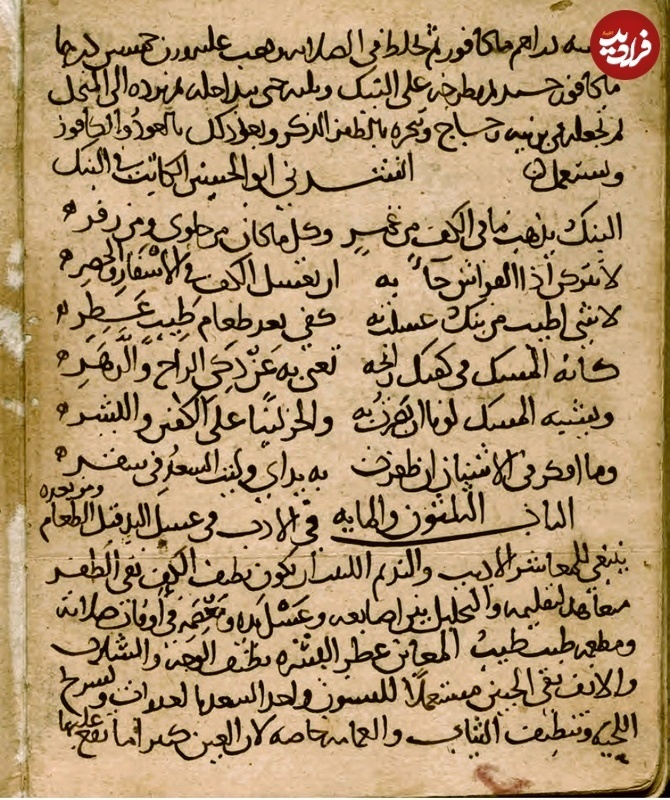 ماكافور ثم تخلط في الصلايه ويصب عليه وزن خمسين درهما
ماكافور جيد ثم يطرحه على البنك ويلته حتى يتداخله ثم يرده الى المنخل
ثم تجعله في برنيه زجاج وتبخره بالظفر الذكر وبعد ذلك بالعود والكافور
ويستعمل ان انشدني ابو الحسين الكاتب في البنك
البنك يذهب ما في الكف من غمر وكل ما كان من حلوى ومن زفر
لا تتركن اذا الفراش جا به ان تغسل الكف في الاسفار والحضر
لا شي اطيب من بنك غسلت به كفي بعد طعام طيب عطر
كانه المسك في كفيك رايحه تعنى به عن ذكي الراح والزهر
ويشبه المسك لونا ان ظفرت به والخز لينا على الكفين والبشر
وما افكر في الاشنان ان ظفرت به يداي وليت السعد في سفر
الباب الثلثون والمايه في الادب في غسل اليد قبل الطعام
ومن بعده
ينبغي للمعاشر الاديب والنديم اللبيب ان يكون نظيف الكف نقي الظفر
متعاهدا لتقليمه والتخليل بين اصابعه وغسل يده ومعصمه في اوقات صلاته
ومطعمه طيب المغابن عطر البشره نظيف الوجه والشارب
والانف نقي الجبين مستعملا للسنون واحد السعد بالغدوات وتسريح
اللحيه وتنظيف الثياب والعمامه خاصه لان العين كثيرا ما تقع عليها
فرادید